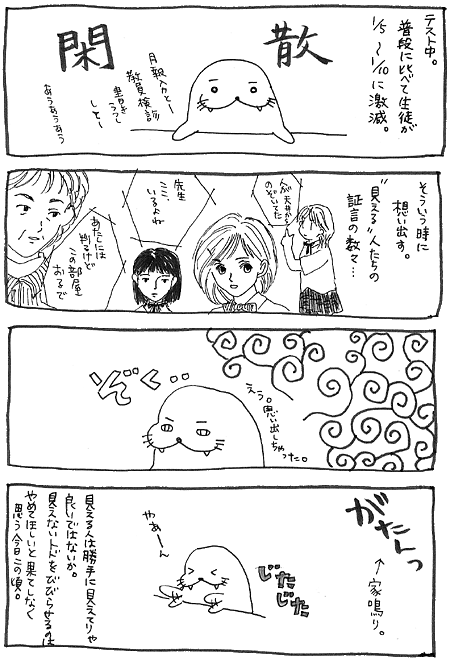 テスト中。
普段に比べて生徒が
1/5～1/10に激減。
閑散
月報入力とー
教員検診
しとー
あうあうあう
そういう時に
想い出す。
”見える”人たちの
証言の数々…
人が天井から
のぞいてた
先生
ここ、
いるよね
あたしには
判るけど
この部屋
おるで
ぞくっ…
えぅ。思い出しちゃった。
がたんっ
↑家鳴り。
やぁーん
じたじた
見える人は勝手に見えてりゃ
良いではないか。
見えないトドをびびらせるのは
やめてほしいと果てしなく
思う今日この頃。